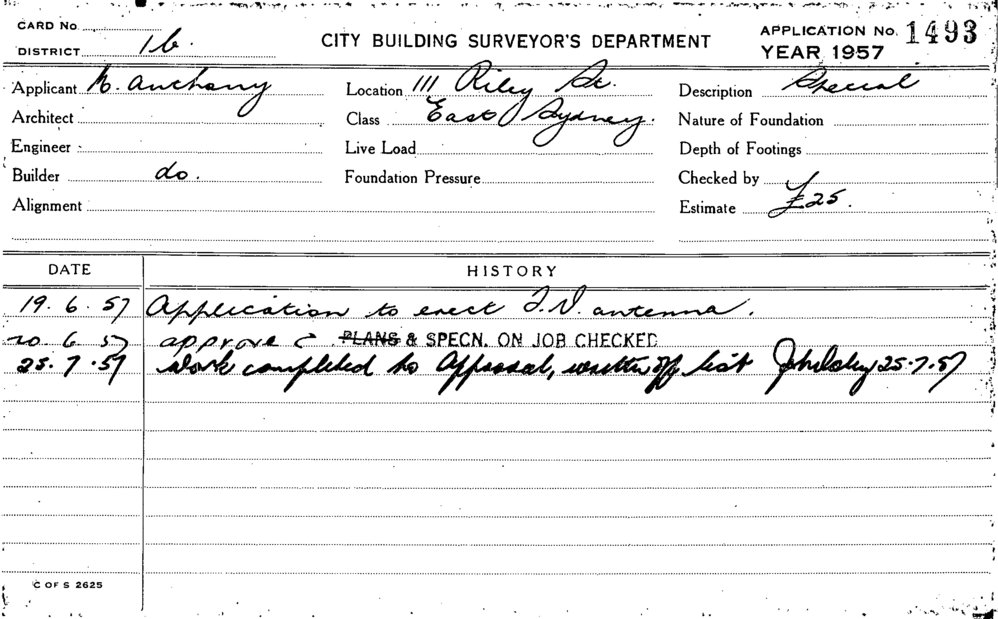 CARD No.
DISTRICT 1b.
CITY BUILDING SURVEYOR'S DEPARTMENT
APPLICATION No. 1493
YEAR 1957
Applicant N. Anthony
Location 111 Riley St.
Description Special
Architect
Class East Sydney.
Nature of Foundation
Engineer
Live Load
Depth of Footings
Builder do.
Foundation Pressure
Checked by
Alignment
Estimate £25.
DATE
HISTORY
19.6.57 Application to erect T.V. antenna.
20.6.57 approve c PLANS & SPECN. ON JOB CHECKED
25.7.57 Work completed to Approval, written off list 25.7.57
C OF S 2625